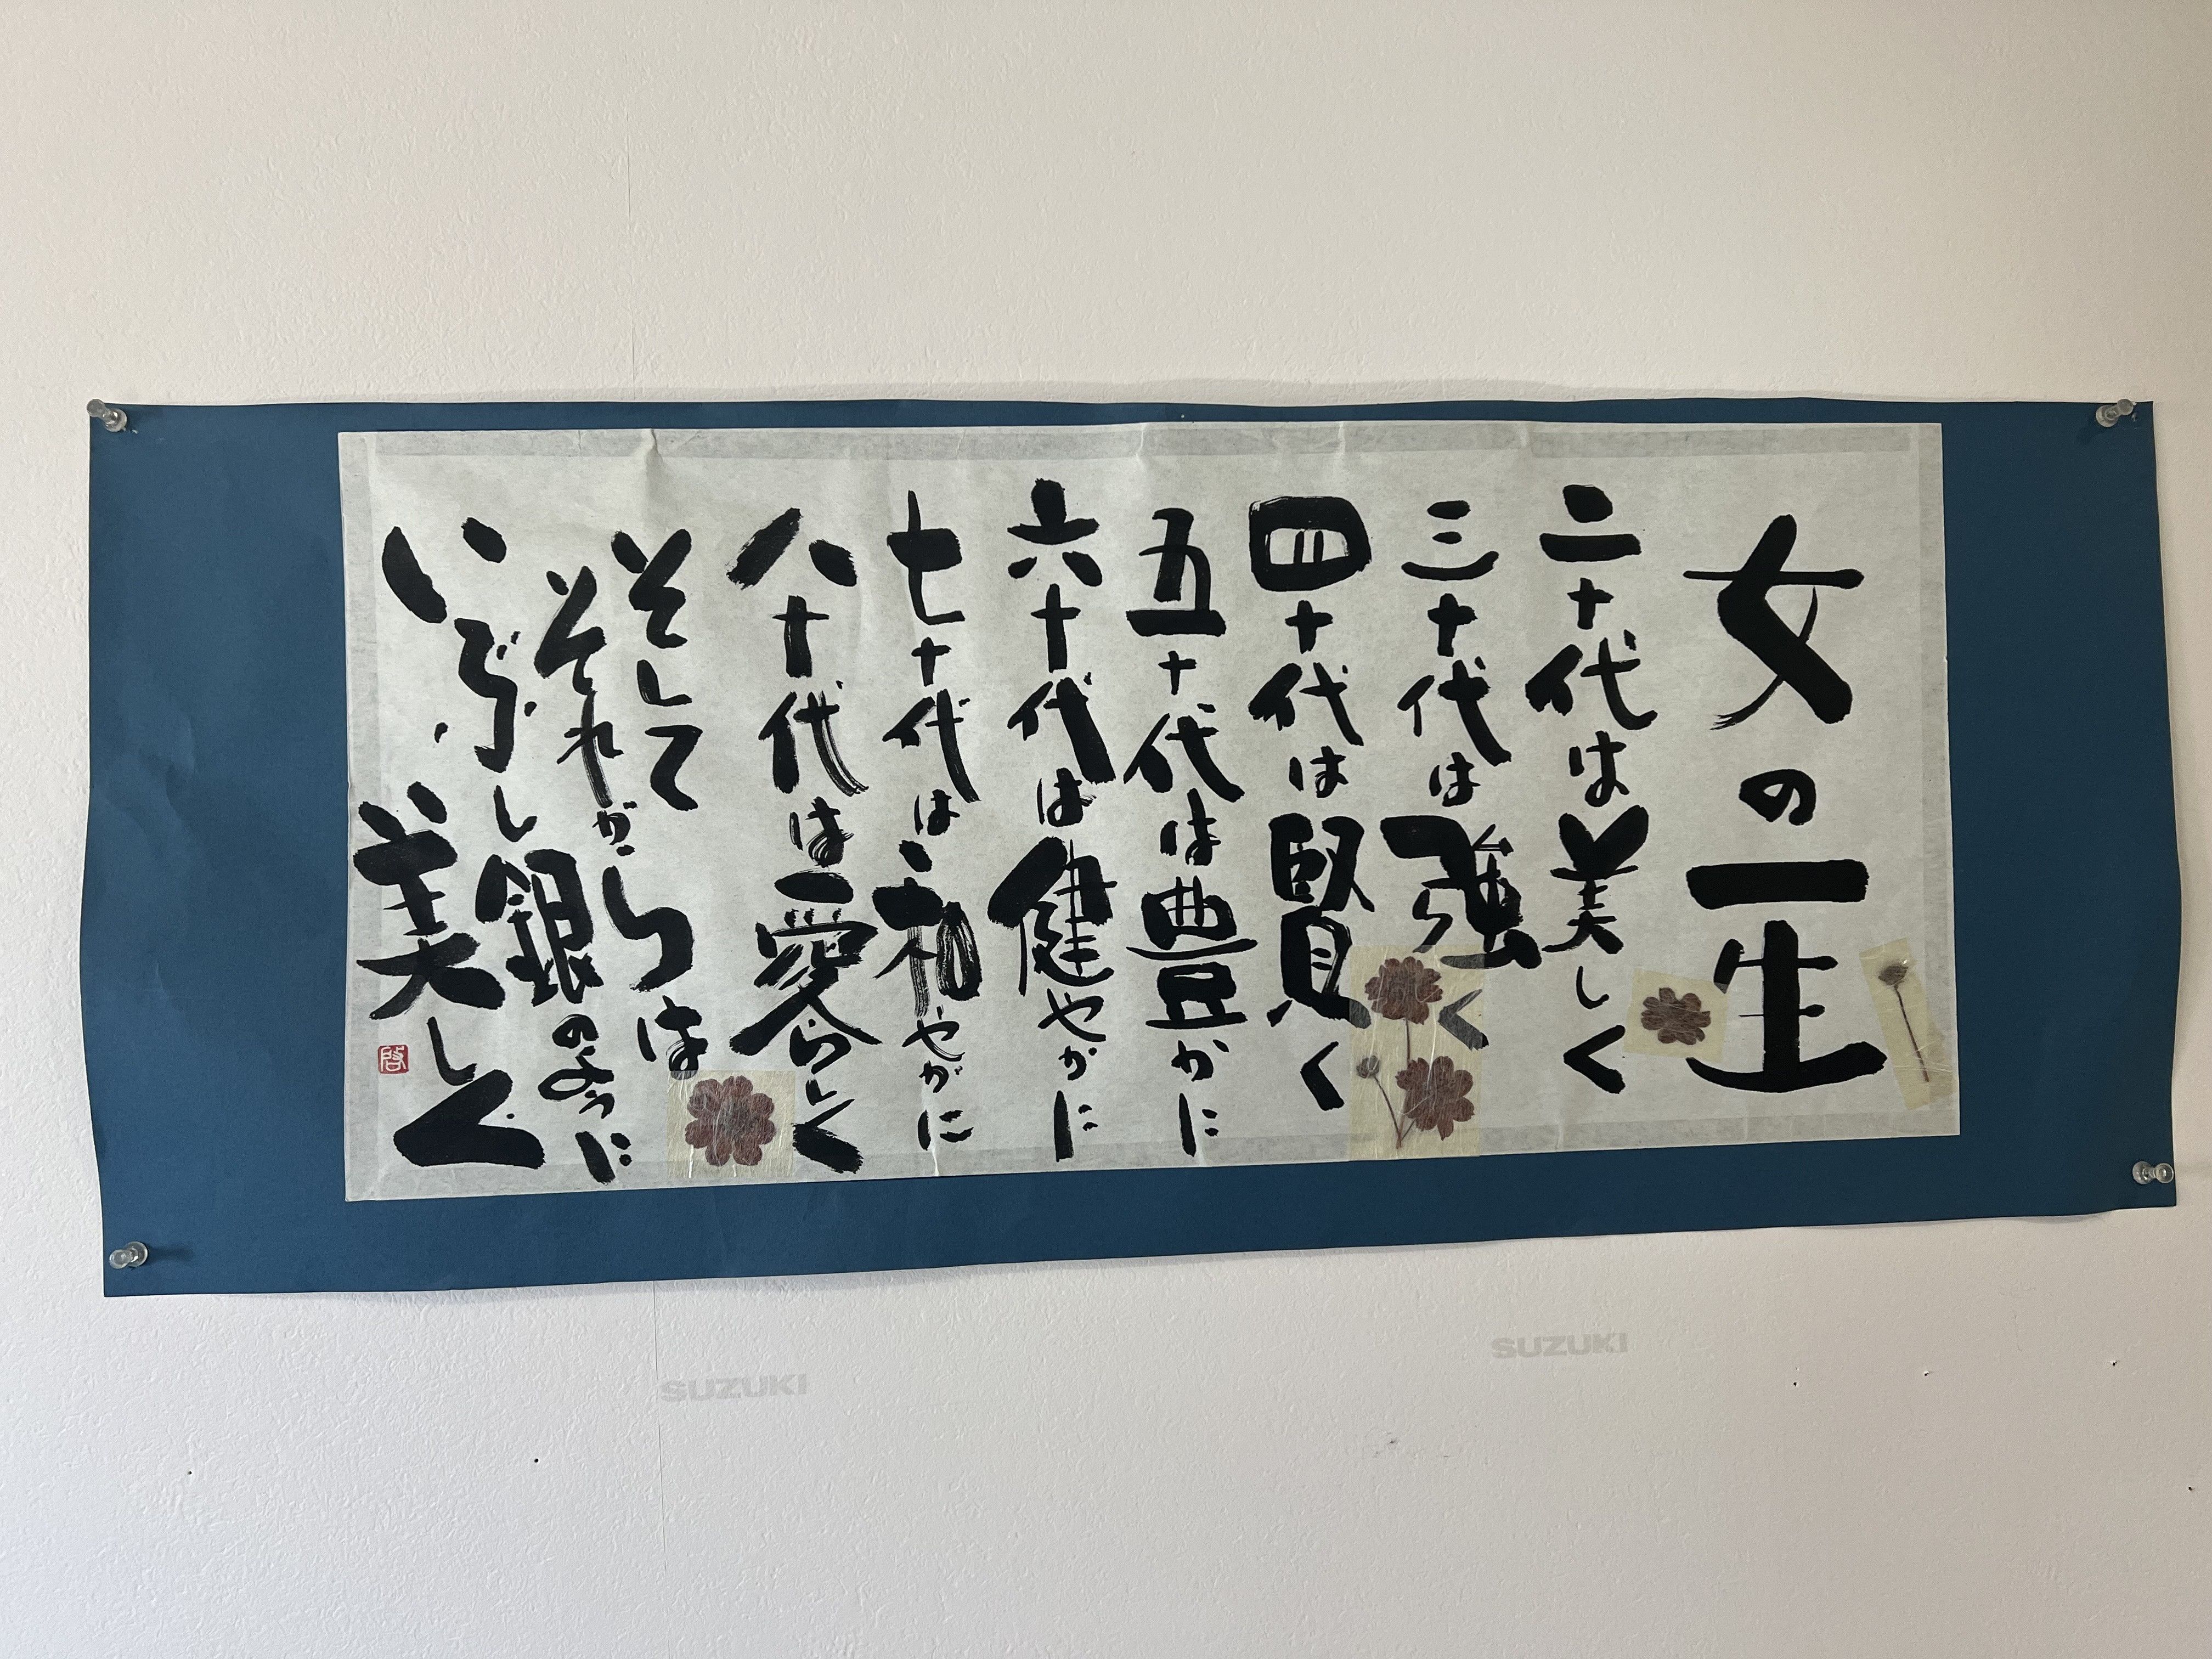 女の一生
二十代は美しく
三十代は強く
四十代は賢く
五十代は豊かに
六十代は健やかに
七十代は和やかに
八十代は愛らしく
そして
それからは
いぶし銀のように
美しく
啓
SUZUKI
SUZUKI